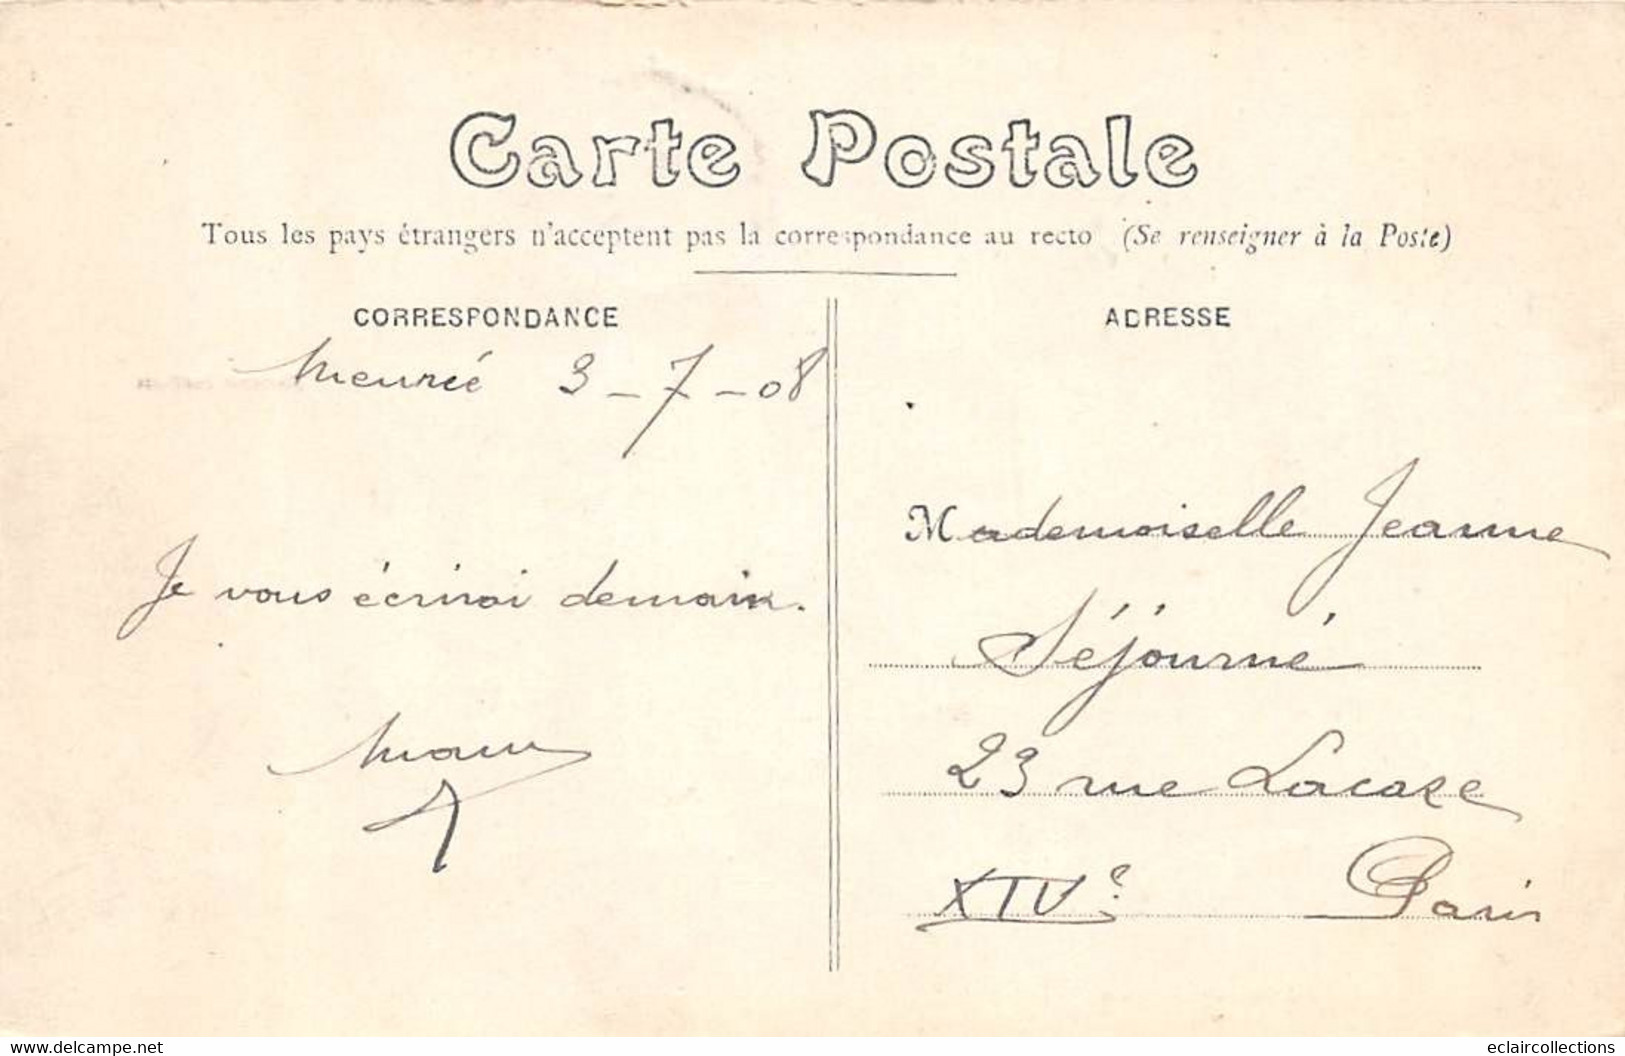 Carte Postale
Tous les pays étrangers n'acceptent pas la correspondance au recto (Se renseigner à la Poste)
CORRESPONDANCE
3-7-08
Je vous écrirai demain.
ADRESSE
Mademoiselle Jeanne
Séjourné
23 rue Lacaze
XIVe Paris
www.delcampe.net
eclaircollections